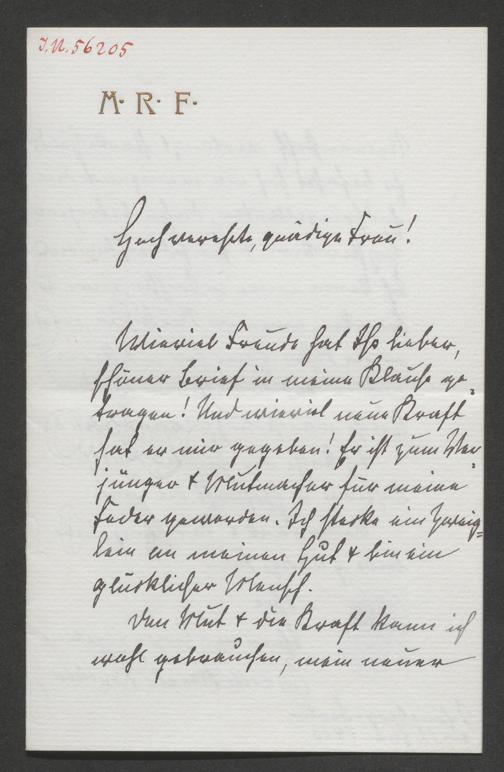 J.N. 56205
M. R. F.
Hochverehrte, gnädige Frau!
Wieviel Freude hat Ihr lieber,
schöner Brief in meine Klause ge-
tragen! Und wieviel neue Kraft
hat er mir gegeben! Er ist zum Ver-
jünger & Mutmacher für meine
Feder geworden. Ich stecke ein Zweig-
lein an meinen Hut & bin ein
glücklicher Mensch.
Den Mut & die Kraft kann ich
wohl gebrauchen, mein neuer